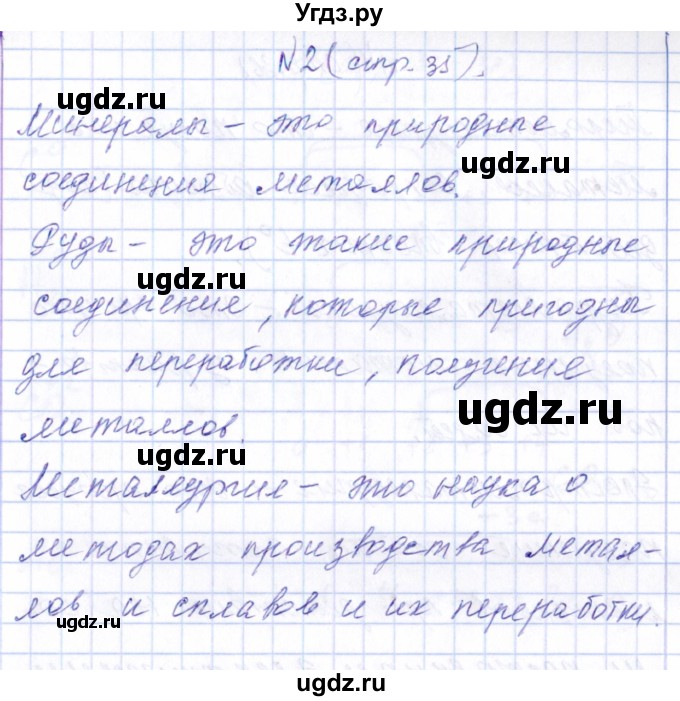 Угдз.ру
N2 (стр. 35).
ugdz.ru
Минералы – это природные
ugdz.ru
соединения металлов.
Руды – это такие природные
ugdz.ru
соединение, которые пригодны
для переработки, получение
ugdz.ru
металлов.
ugdz.ru
Металлургия – это наука о
методах производства метал-
лов и сплавов и их переработки.
ugdz.ru